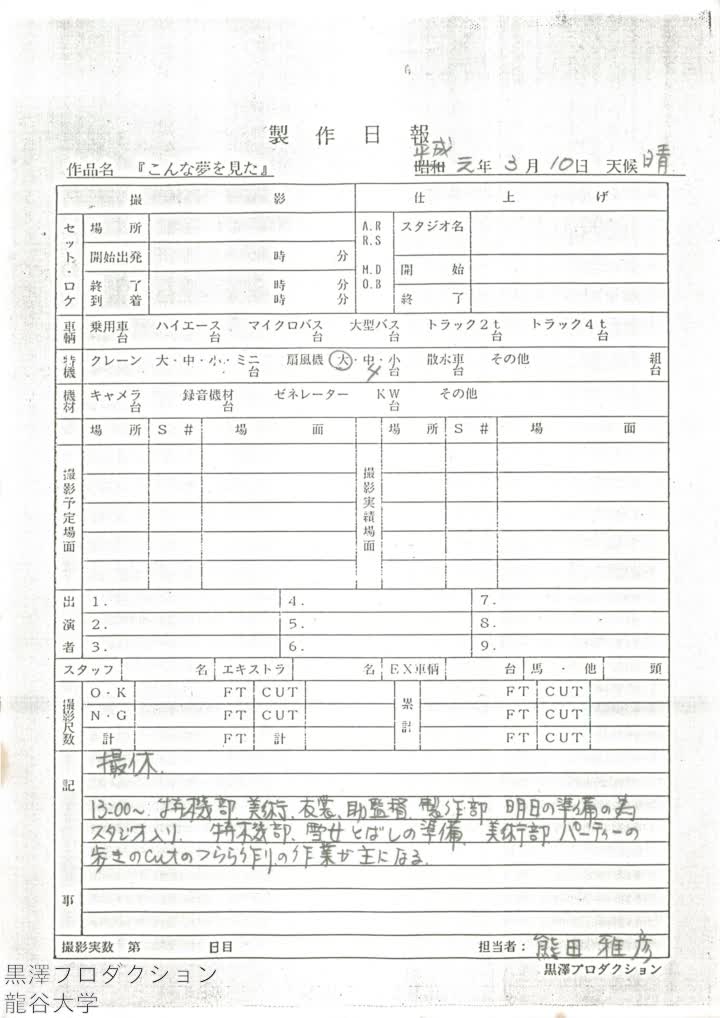 製作日報
作品名 『こんな夢を見た』 平成 昭和 元年 3月 10日 天候 晴
撮影 仕上げ
セット・ロケ 場所 A.R R.S スタジオ名
開始出発 時 分
M.D O.B 開始
終了 時 分 終了
到着 時 分
車輌 乗用車 台 ハイエース 台 マイクロバス 台 大型バス 台 トラック2t 台 トラック4t 台
特機 クレーン 大・中・小・ミニ 台 扇風機 大・中・小 4台 散水車 台 その他 組 台
機材 キャメラ 台 録音機材 台 ゼネレーター KW 台 その他
場所 S# 場面 場所 S# 場面
撮影予定場面 撮影実績場面
出演者
1. 4. 7.
2. 5. 8.
3. 6. 9.
スタッフ 名 エキストラ 名 EX車輌 台 馬・他 頭
撮影尺数 O・K FT CUT 累計 FT CUT
N・G FT CUT FT CUT
計 FT 計 FT CUT
記事
撮休.
13:00~ 特機部、美術、衣裳、助監督、製作部 明日の準備の為
スタジオ入り、特機部、雪女とばしの準備、美術部 パーティーの
歩きのcutのつらら作りの作業が主になる.
撮影実数 第 日目 担当者: 熊田雅彦
黒澤プロダクション
黒澤プロダクション
龍谷大学